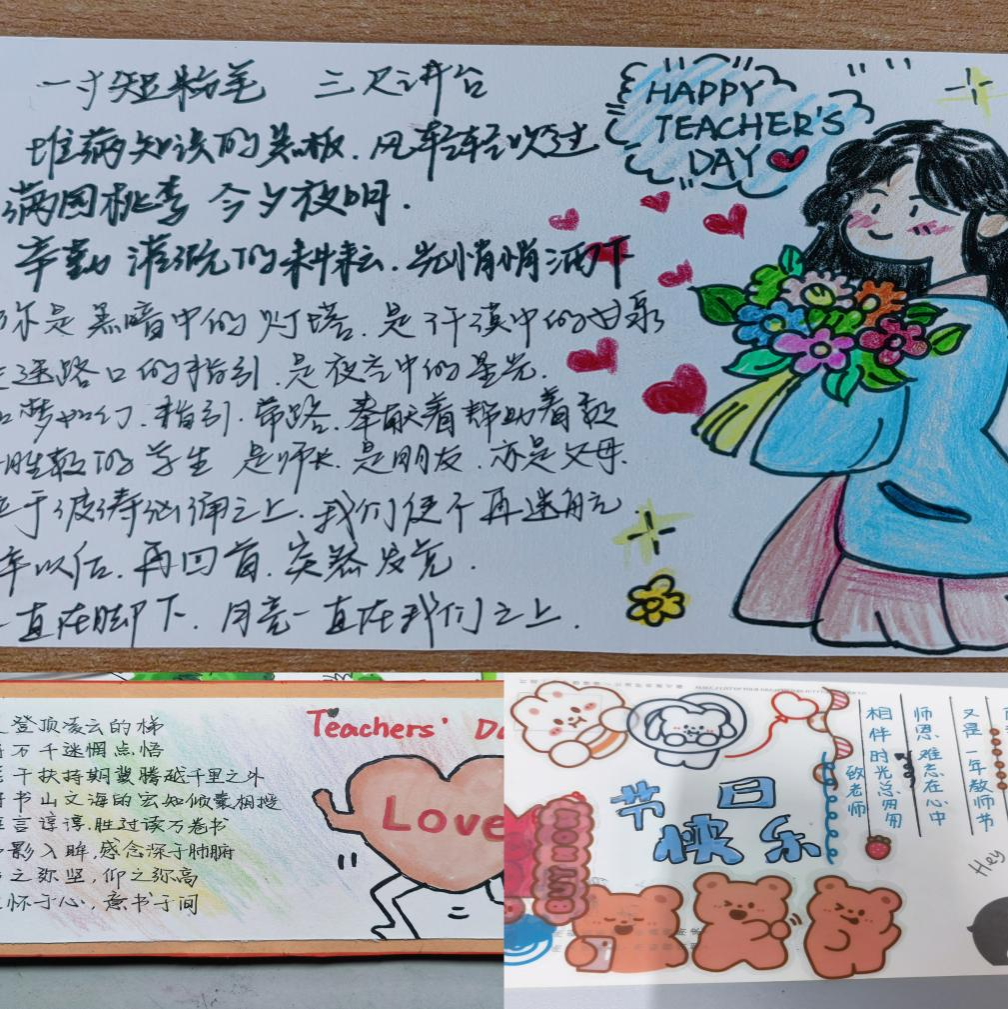 一寸短粉笔 三尺讲台
堆满知识的黑板.风轻轻吹过
满园桃李 今夕夜明.
辛勤 灌浇下的耕耘.光悄悄洒下
你是黑暗中的灯塔.是干漠中的甘泉
迷路口的指引.是夜空中的星光.
梦如幻.指引.带路.奉献着帮助着教
胜教下的学生 是师长.是朋友.亦是父母.
于波涛汹涌之上.我们便不再迷航
年以后.再回首.突然发觉.
一直在脚下.月亮一直在我们之上.
HAPPY
TEACHER'S
DAY
登顶凌云的梯
万千迷惘点悟
干扶持期冀腾越千里之外
书山文海的宏知倾囊相授
言谆谆,胜过读万卷书
影入眸,感念深于肺腑
之弥坚,仰之弥高
怀于心,意书于间
Teachers' Da
Love
节日
快乐
又是一年教师节
师恩难忘在心中
相伴时光总匆匆
敬老师
Hey